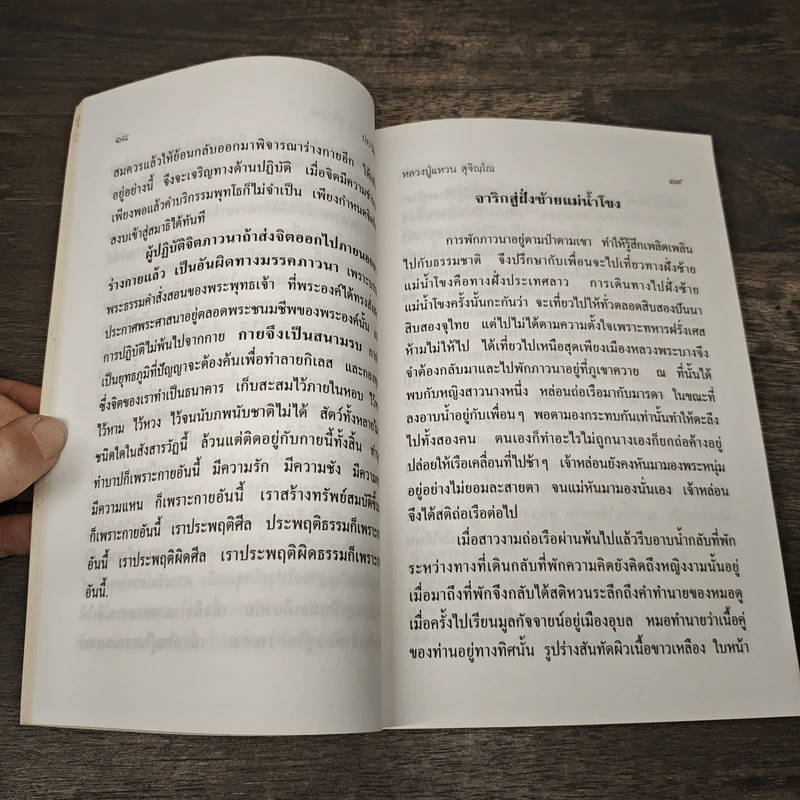 ๑๘
สมควรแล้วให้ย้อนกลับออกมาพิจารณาร่างกายอีก
อยู่อย่างนี้ จึงจะเจริญทางด้านปฏิบัติ เมื่อจิตมีความ
เพียงพอแล้วคำบริกรรมพุทโธก็ไม่จำเป็น เพียงกำหนด
สงบเข้าสู่สมาธิได้ทันที
ผู้ปฏิบัติจิตภาวนาถ้าส่งจิตออกไปภายนอก
ร่างกายแล้ว เป็นอันผิดทางมรรคภาวนา เพราะ
พระธรรมคำสั่งสอนของพระพุทธเจ้า ที่พระองค์ได้ทรง
ประกาศพระศาสนาอยู่ตลอดพระชนมชีพของพระองค์นั้น
การปฏิบัติไม่พ้นไปจากกาย กายจึงเป็นสนามรบ
เป็นยุทธภูมิที่ปัญญาจะต้องค้นเพื่อทำลายกิเลส และ
ซึ่งจิตของเราทำเป็นธนาคาร เก็บสะสมไว้ภายในหอบ ไว้
ไว้หาม ไว้หวง ไว้จนนับภพนับชาติไม่ได้ สัตว์ทั้งหลาย
ชนิดใดในสังสารวัฏนี้ ล้วนแต่ติดอยู่กับกายนี้ทั้งสิ้น
ทำบาปก็เพราะกายอันนี้ มีความรัก มีความชัง มีความ
มีความแหน ก็เพราะกายอันนี้ เราสร้างทรัพย์สมบัติ
ก็เพราะกายอันนี้ เราประพฤติศีล ประพฤติธรรมก็เพราะ
อันนี้ เราประพฤติผิดศีล เราประพฤติผิดธรรมก็เพราะ
อันนี้.
หลวงปู่แหวน สุจิณฺโณ
๑๙
จาริกสู่ฝั่งซ้ายแม่น้ำโขง
การพักภาวนาอยู่ตามป่าตามเขา ทำให้รู้สึกเพลิดเพลิน
ไปกับธรรมชาติ จึงปรึกษากับเพื่อนจะไปเที่ยวทางฝั่งซ้าย
แม่น้ำโขงคือทางฝั่งประเทศลาว การเดินทางไปฝั่งซ้าย
แม่น้ำโขงครั้งนั้นกะกันว่า จะเที่ยวไปให้ทั่วตลอดสิบสองปันนา
สิบสองจุไทย แต่ไปไม่ได้ตามความตั้งใจเพราะทหารฝรั่งเศส
ห้ามไม่ให้ไป ได้เที่ยวไปเหนือสุดเพียงเมืองหลวงพระบางจึง
จำต้องกลับมาและไปพักภาวนาอยู่ที่ภูเขาควาย ณ ที่นั้นได้
พบกับหญิงสาวนางหนึ่ง หล่อนถ่อเรือมากับมารดา ในขณะที่
ลงอาบน้ำอยู่กับเพื่อนๆ พอตามองกระทบกันเท่านั้นทำให้ตะลึง
ไปทั้งสองคน ตนเองก็ทำอะไรไม่ถูกนางเองก็ยกถ่อค้างอยู่
ปล่อยให้เรือเคลื่อนที่ไปช้าๆ เจ้าหล่อนยังคงหันมามองพระหนุ่ม
อยู่อย่างไม่ยอมละสายตา จนแม่หันมามองนั่นเอง เจ้าหล่อน
จึงได้สติถ่อเรือต่อไป
เมื่อสาวงามถ่อเรือผ่านพ้นไปแล้วรีบอาบน้ำกลับที่พัก
ระหว่างทางที่เดินกลับที่พักความคิดยังคิดถึงหญิงงามนั้นอยู่
เมื่อมาถึงที่พักจึงกลับได้สติหวนระลึกถึงคำทำนายของหมอดู
เมื่อครั้งไปเรียนมูลกัจจายน์อยู่เมืองอุบล หมอทำนายว่าเนื้อคู่
ของท่านอยู่ทางทิศนั้น รูปร่างสันทัดผิวเนื้อขาวเหลือง ใบหน้า